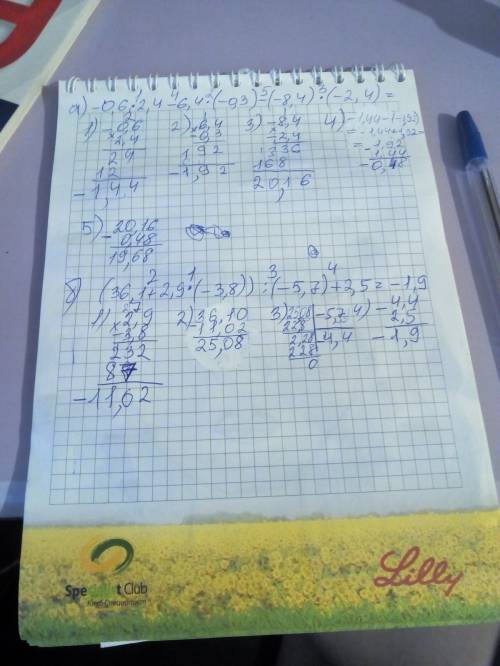 а) -0,6·2,4-6,4:(-0,3)-(-8,4):(-2,4)=
1) 0,6 2) 6,4 3) -8,4 4) -1,44-(-1,92)
×2,4 ×0,3 ×-2,4 =-1,44+1,92=
24 192 336 =-1,92
12 -1,92 168 1,44
-1,44 20,16 -0,48
5) 20,16
- 0,48
19,68
б) (36,1+2,9·(-3,8)):(-5,7)+2,5=-1,9
1) 2,9 2) 36,10 3) 2508 -5,7 4) -4,4
×3,8 -11,02 228 4,4 2,5
232 25,08 228 -1,9
87 228
-11,02 0
Club
Lilly